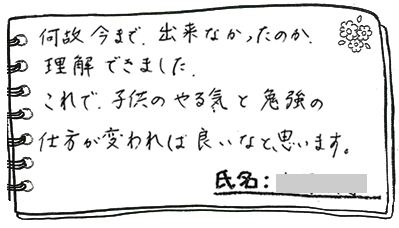 何故今まで、出来なかったのか、
理解できました。
これで、子供のやる気と勉強の
仕方が変われば良いなと、思います。
氏名：